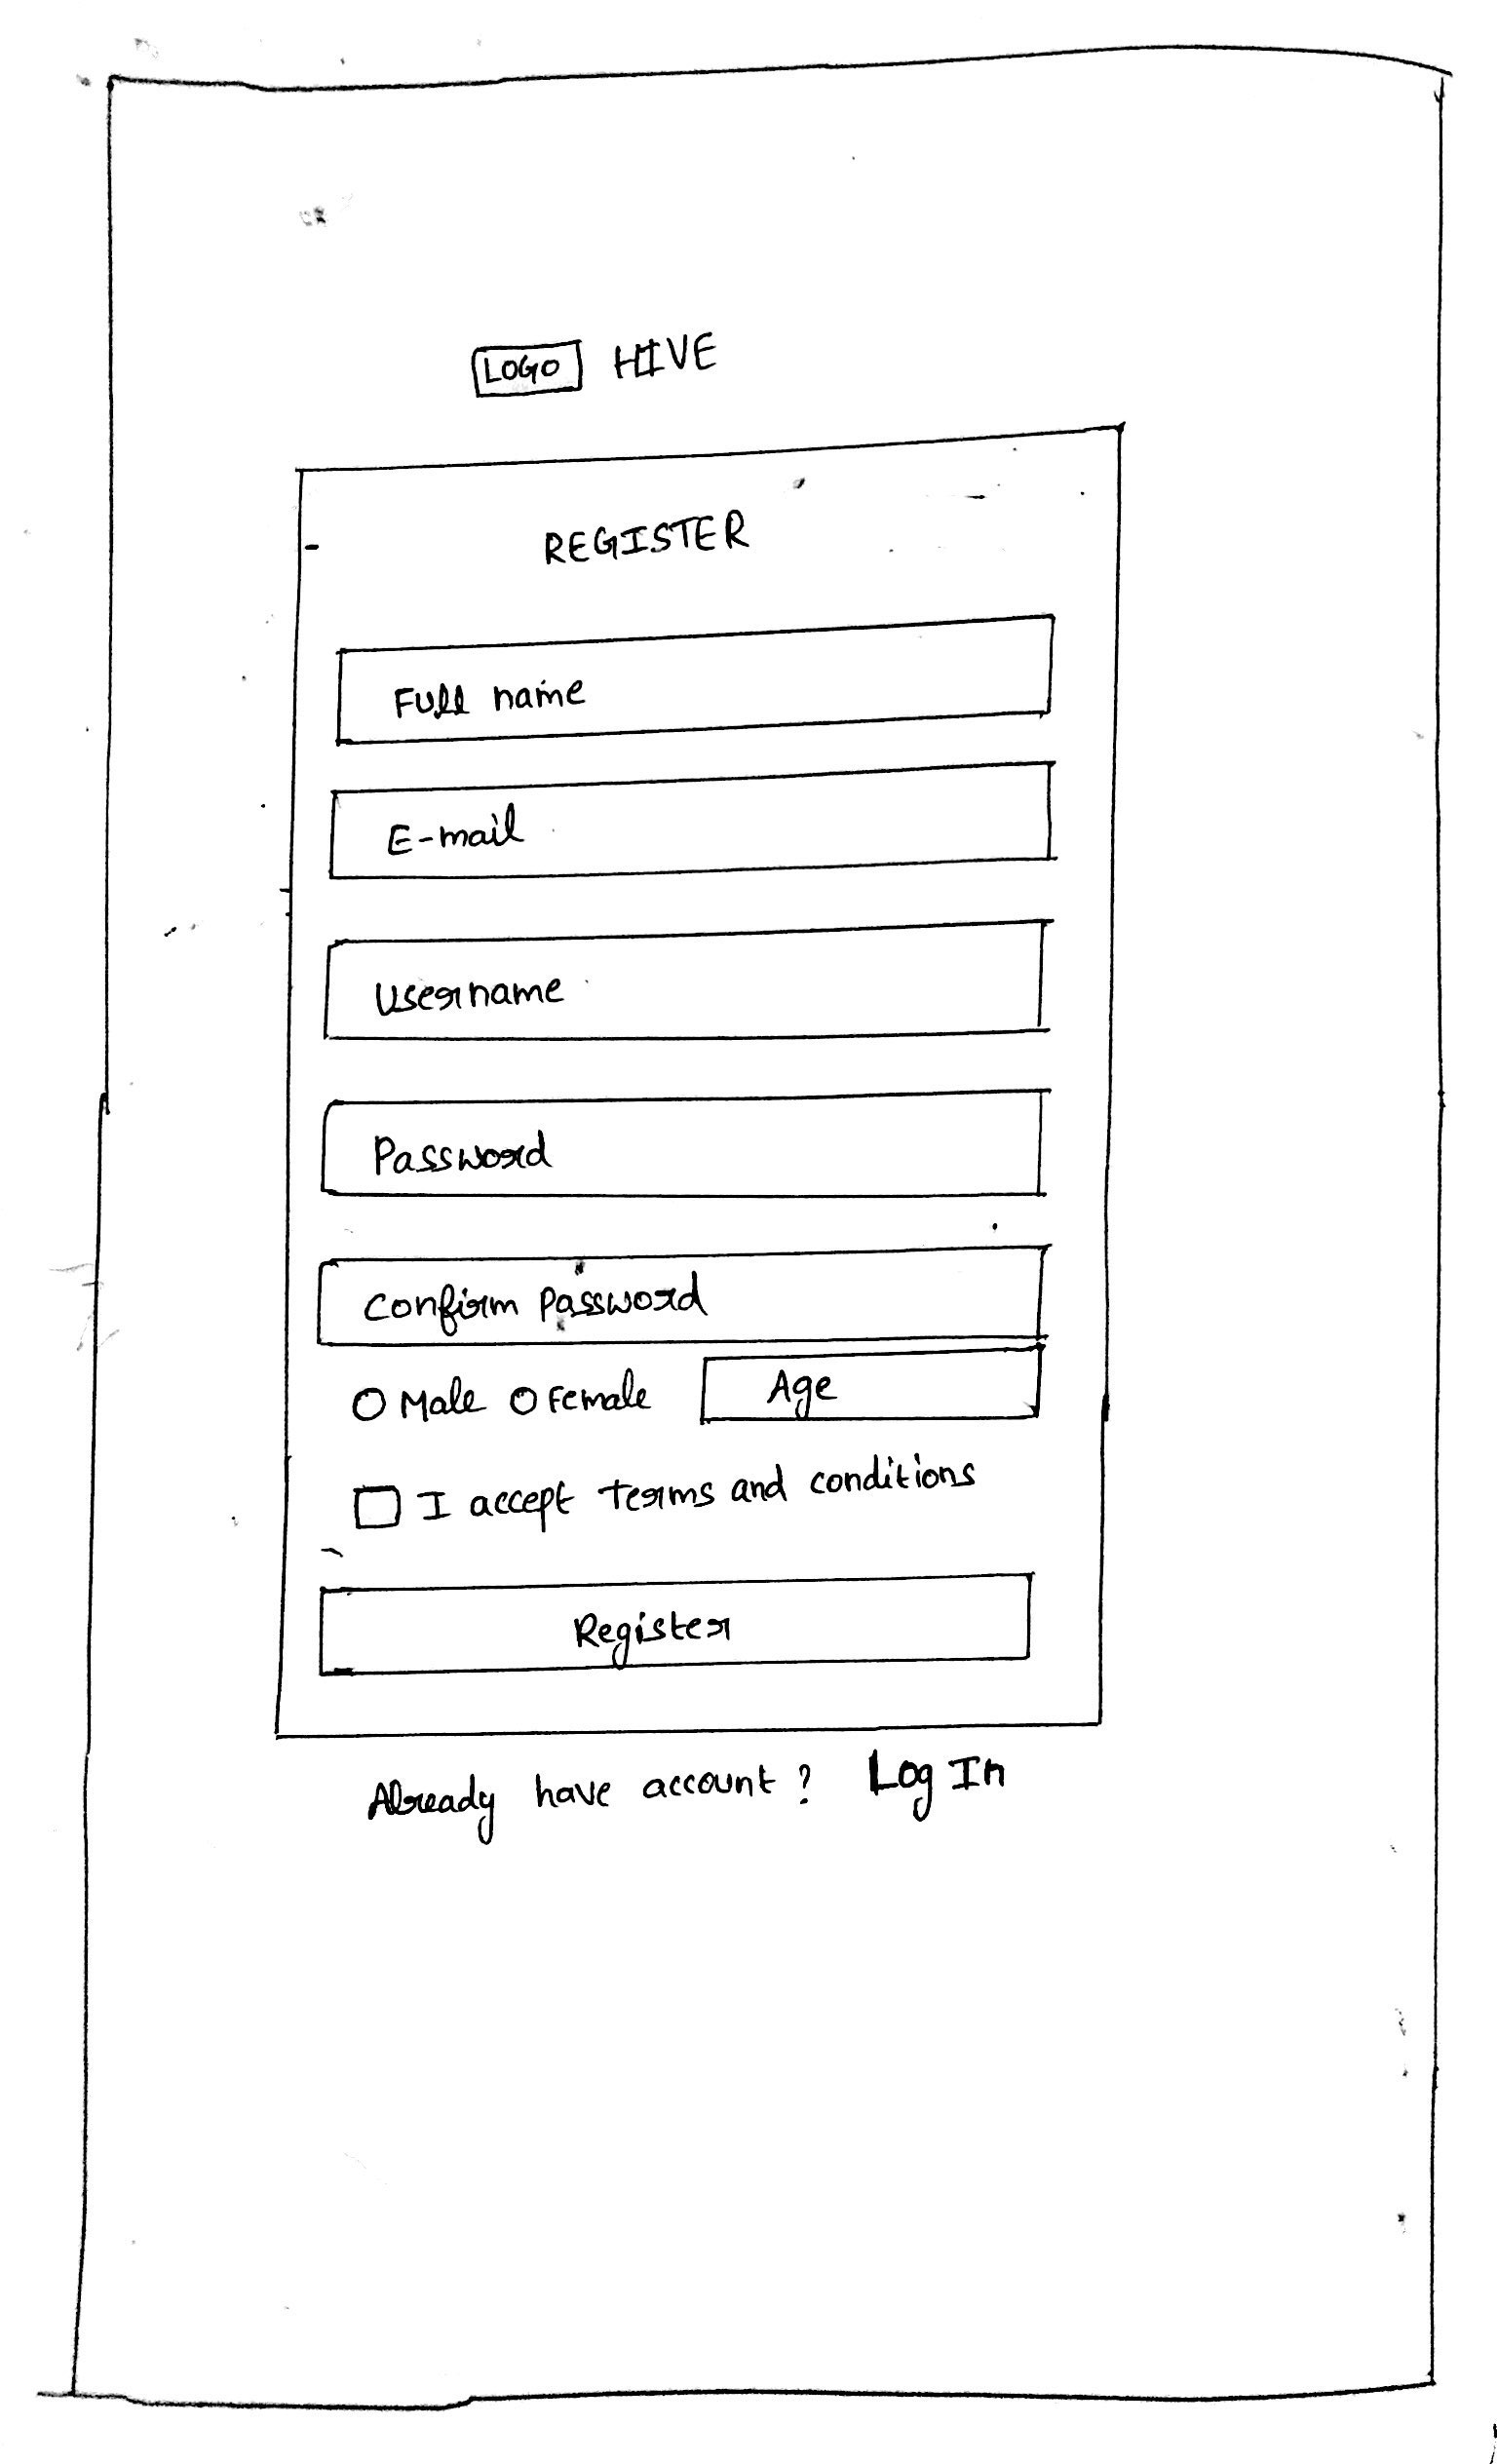 LOGO HIVE
REGISTER
Full name
E-mail
Username
Password
Confirm Password
Male Female Age
I accept terms and conditions
Register
Already have account? Log In